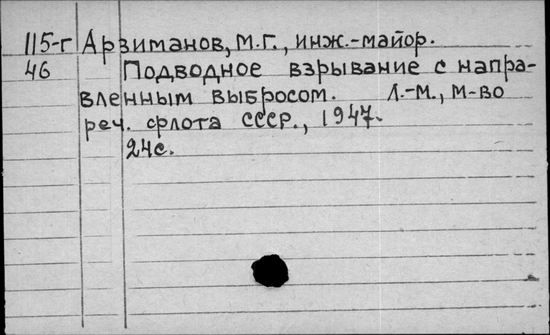 115-г Арзиманов, М.Г., инж.-майор.
46 Подводное взрывание с напра-
вленным выбросом. Л.-М., М-во
реч. флота СССР., 1947.
24с.